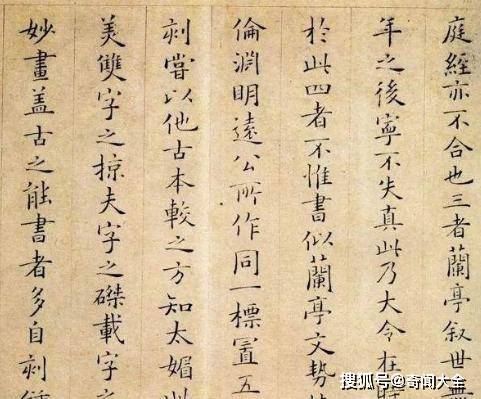 庭經亦不合也三者蘭亭叙世無
年之後寧不失真此乃大令在時
於此四者不惟書似蘭亭文勢
倫淵明遠公所作同一標置五
刻嘗以他古本較之方知太媚
美雙字之掠夫字之磔載字之
妙畫盖古之能書者多自刻
搜狐号@奇闻大全